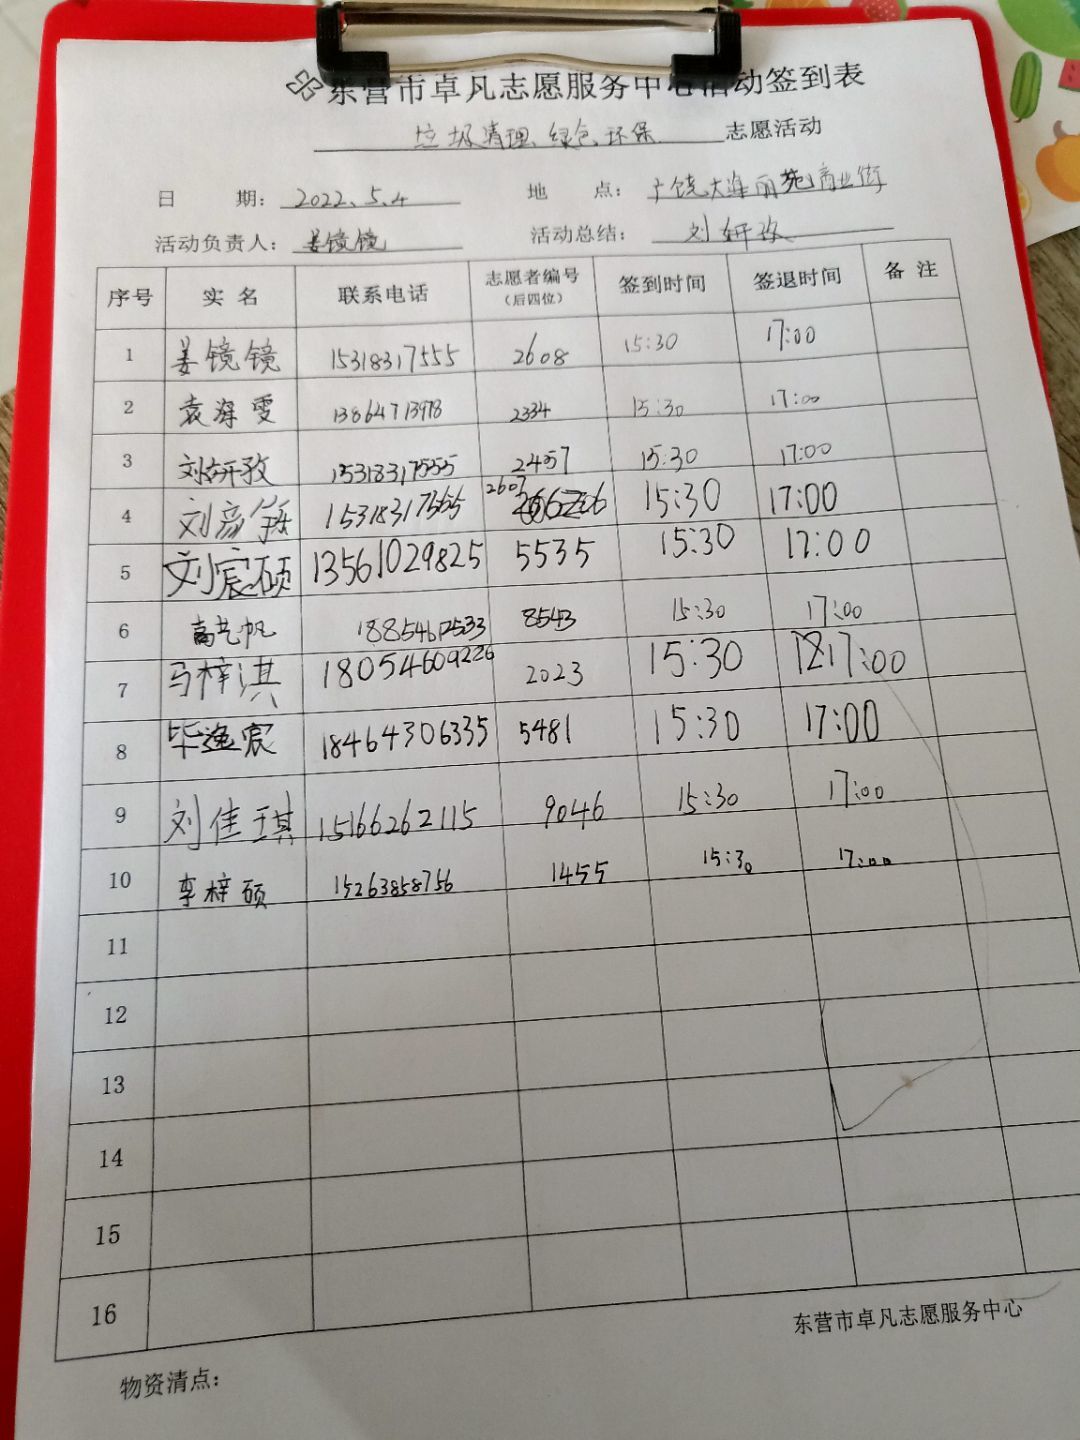 东营市卓凡志愿服务中心活动签到表
垃圾清理、绿色环保 志愿活动
日 期: 2022.5.4 地 点: 广饶大海丽苑商业街
活动负责人: 姜镜镜 活动总结: 刘妍孜
序号 实 名 联系电话 志愿者编号(后四位) 签到时间 签退时间 备 注
1 姜镜镜 15318317555 2608 15:30 17:00
2 袁 雯 13864713978 2334 15:30 17:00
3 刘妍孜 15318317555 2457 15:30 17:00
4 刘彦 15318317555 2607 15:30 17:00
5 刘宸硕 13561029825 5535 15:30 17:00
6 高艺帆 18854612533 8543 15:30 17:00
7 马梓淇 18054609226 2023 15:30 17:00
8 毕逸宸 18464306335 5481 15:30 17:00
9 刘佳琪 15166262115 9046 15:30 17:00
10 李梓硕 15263858756 1455 15:30 17:00
11
12
13
14
15
16
东营市卓凡志愿服务中心
物资清点: